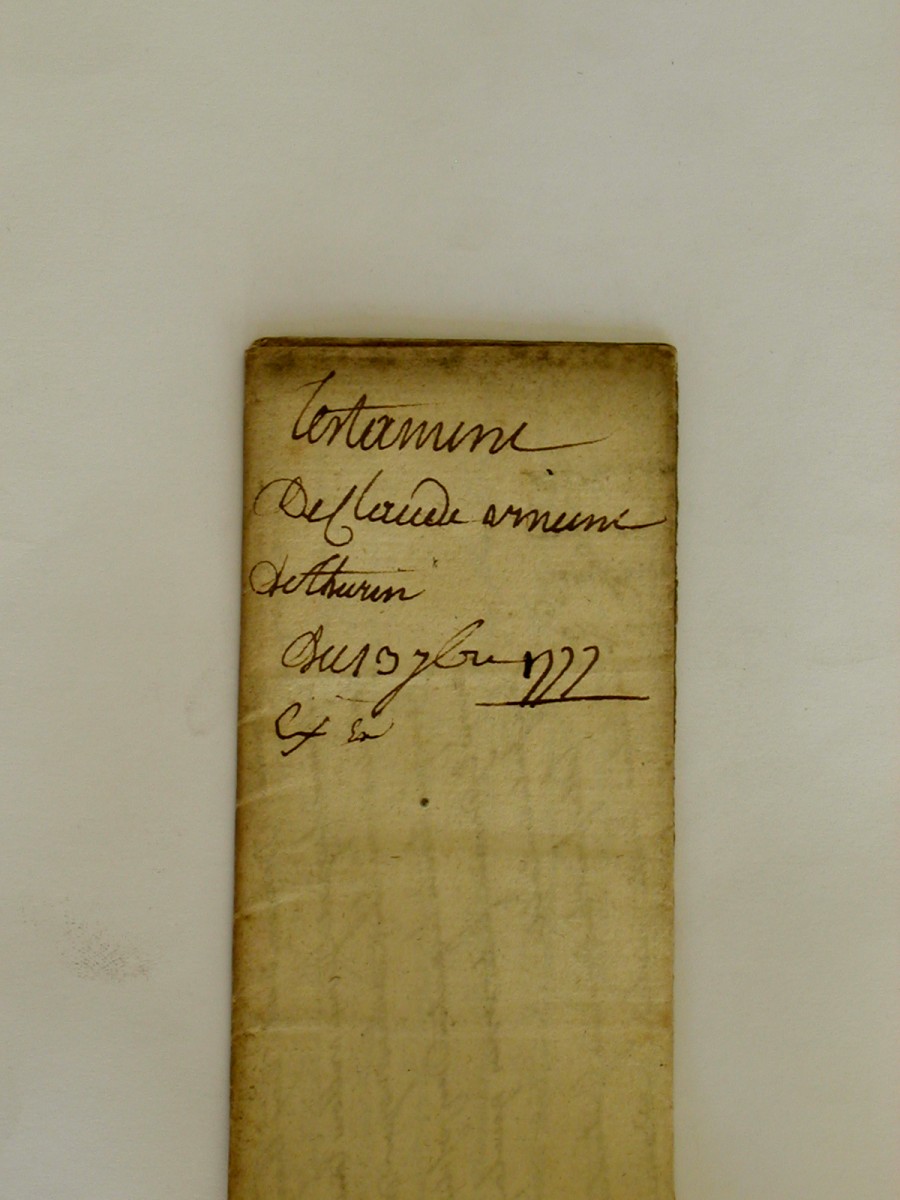 Testament
De Claude
De thurin
Du 13 7bre 1777
Ex